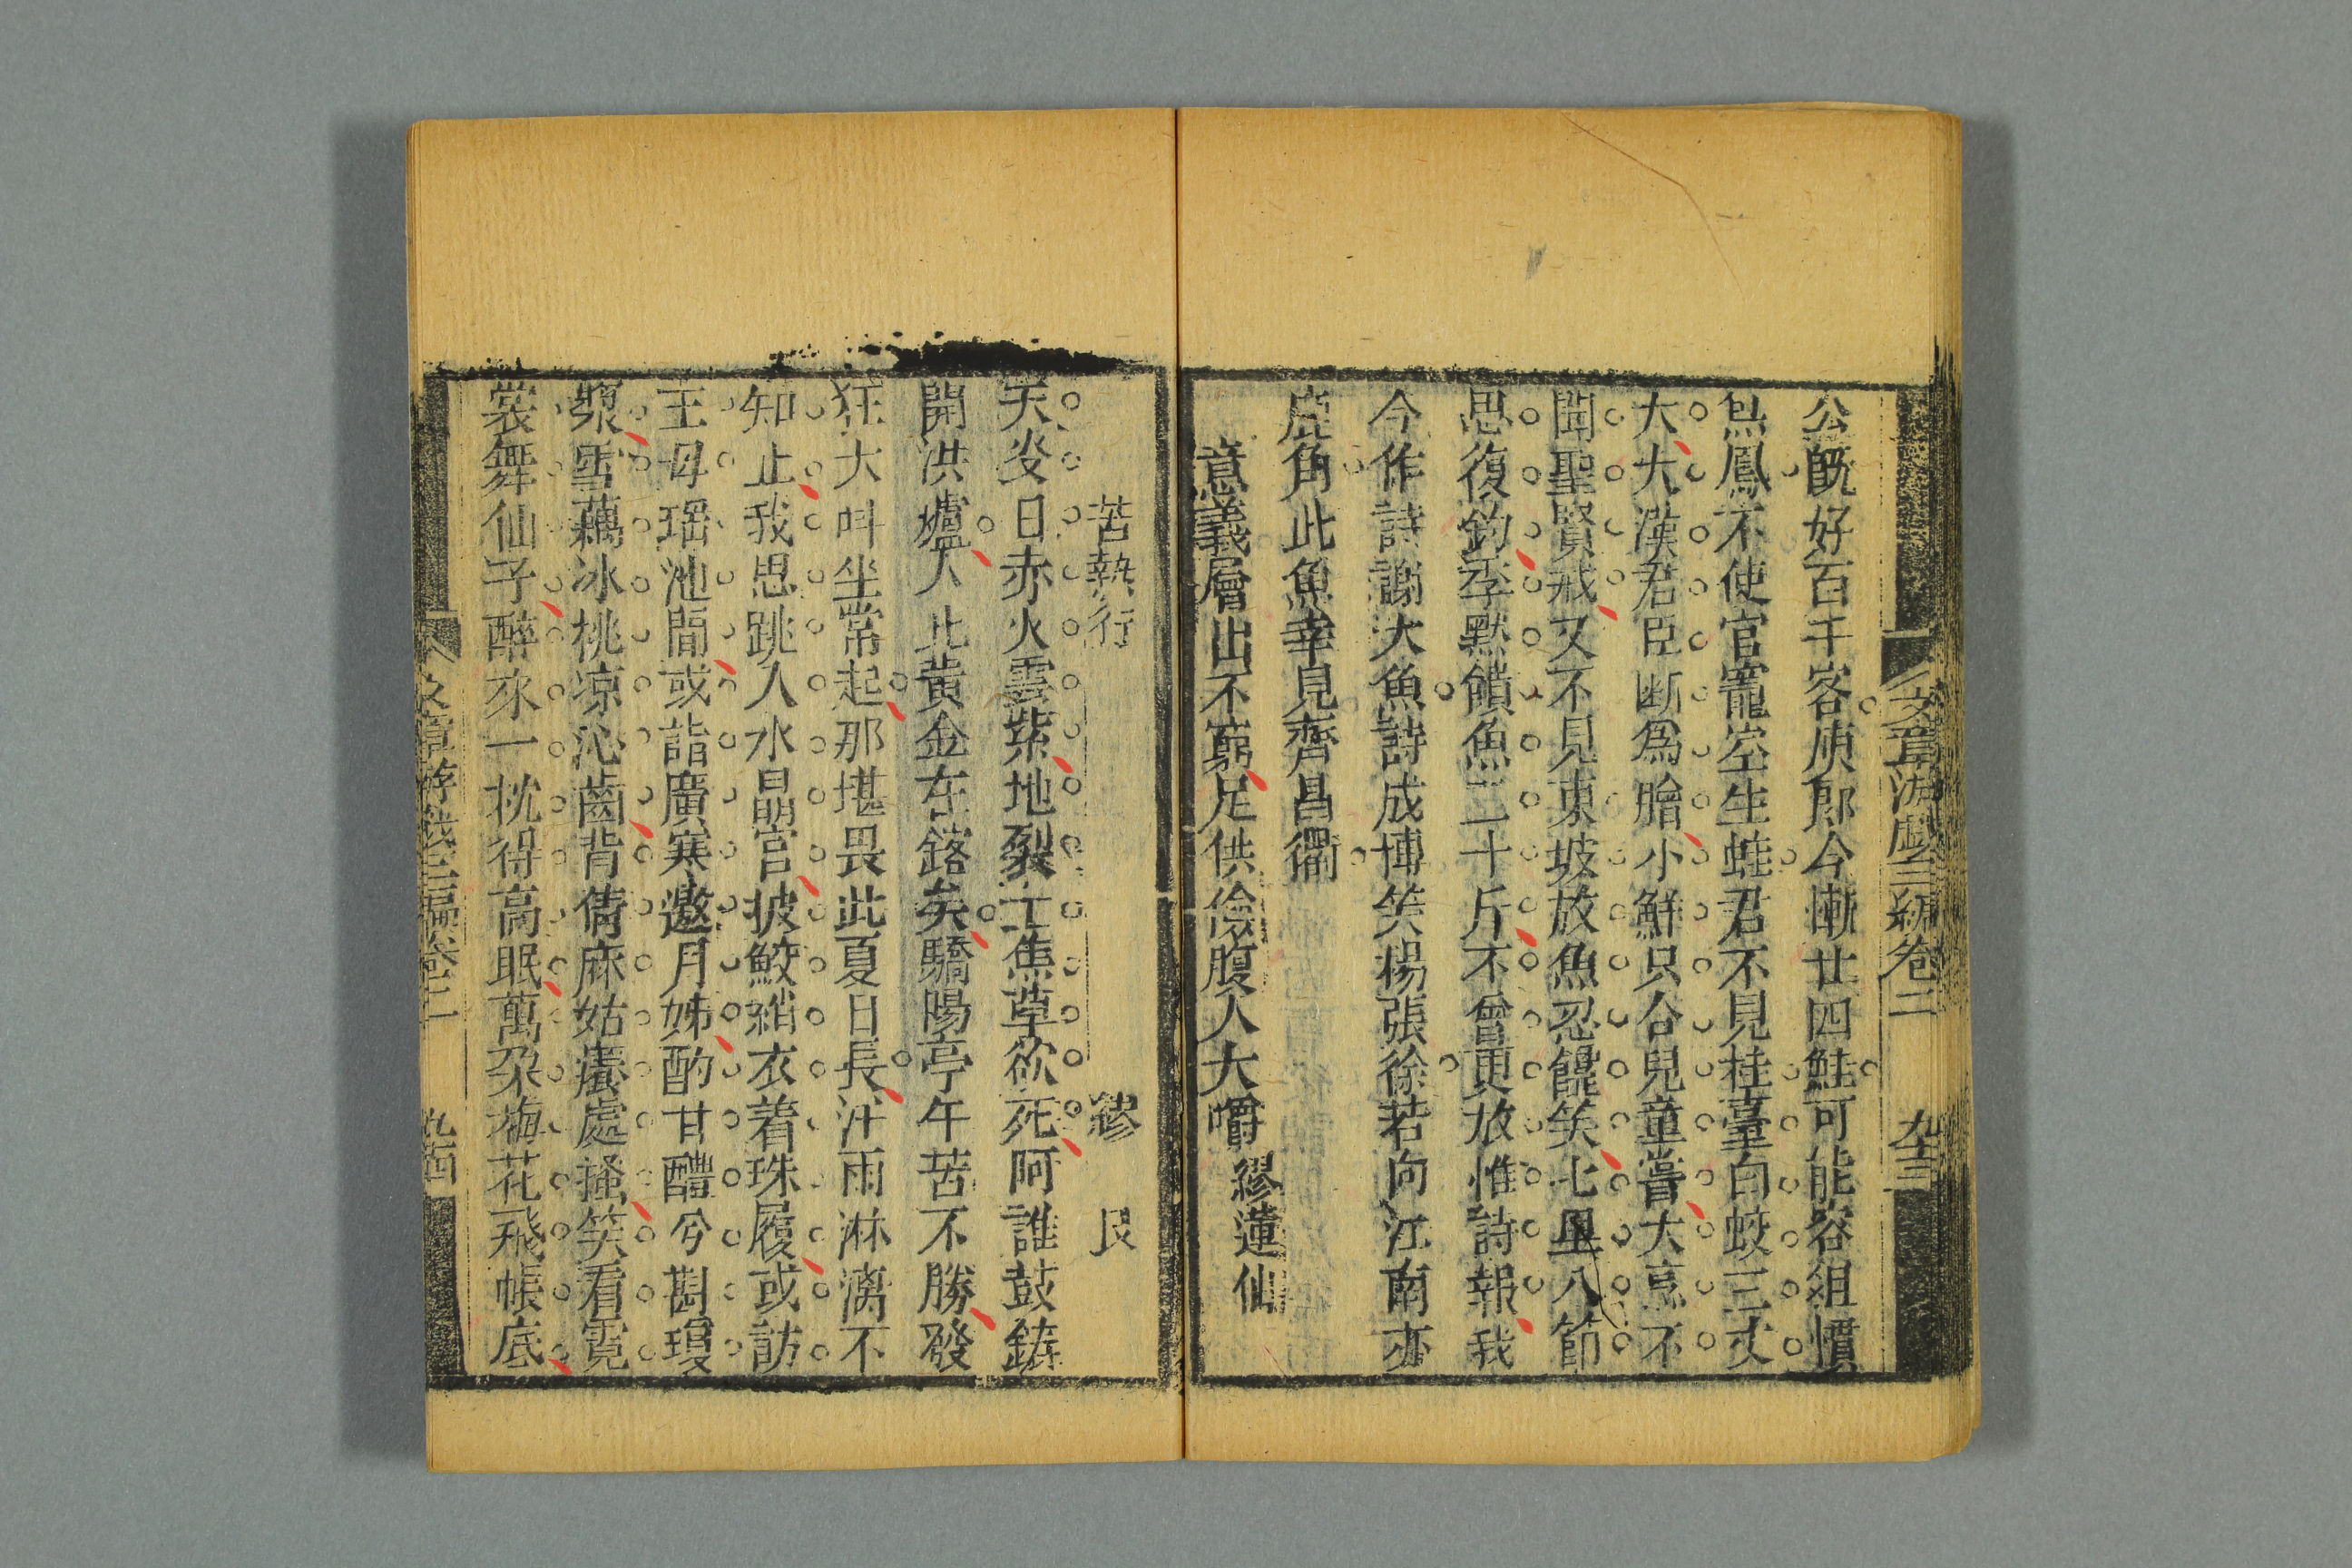 文章游戲三編卷二 九三
公既好百千客庾郎今慚廿四鮭可能容組慣
炰鳳不使官竈空生蛙君不見桂臺白蛟三丈
大大漢君臣斷爲膾小鮮只合兒童嘗大烹不
聞聖賢戒又不見東坡放魚忍饞笑七星八節
思復鈞季默饋魚二十斤不曾更放惟詩報我
今作詩謝大魚詩成博笑楊張徐若向江南亦
鹿角此魚幸見齊昌衢
意義層出不窮足供儉腹人大嚼 繆蓮仙
苦熱行 繆艮
天炎日赤火雲紫地裂土焦草欲死阿誰鼓鑄
開洪爐人此黃金在鎔矣驕陽亭午苦不勝發
狂大叫坐常起那堪畏此夏日長汗雨淋漓不
知止我思跳入水晶宮披鮫綃衣着珠履或訪
王母瑶池間或詣廣寒邀月姊酌甘醴兮斟瓊
漿雪藕冰桃凉沁齒背倩麻姑癢處搔笑看霓
裳舞仙子醉來一枕得高眠萬朶梅花飛帳底
文章游戲三編卷二 九四